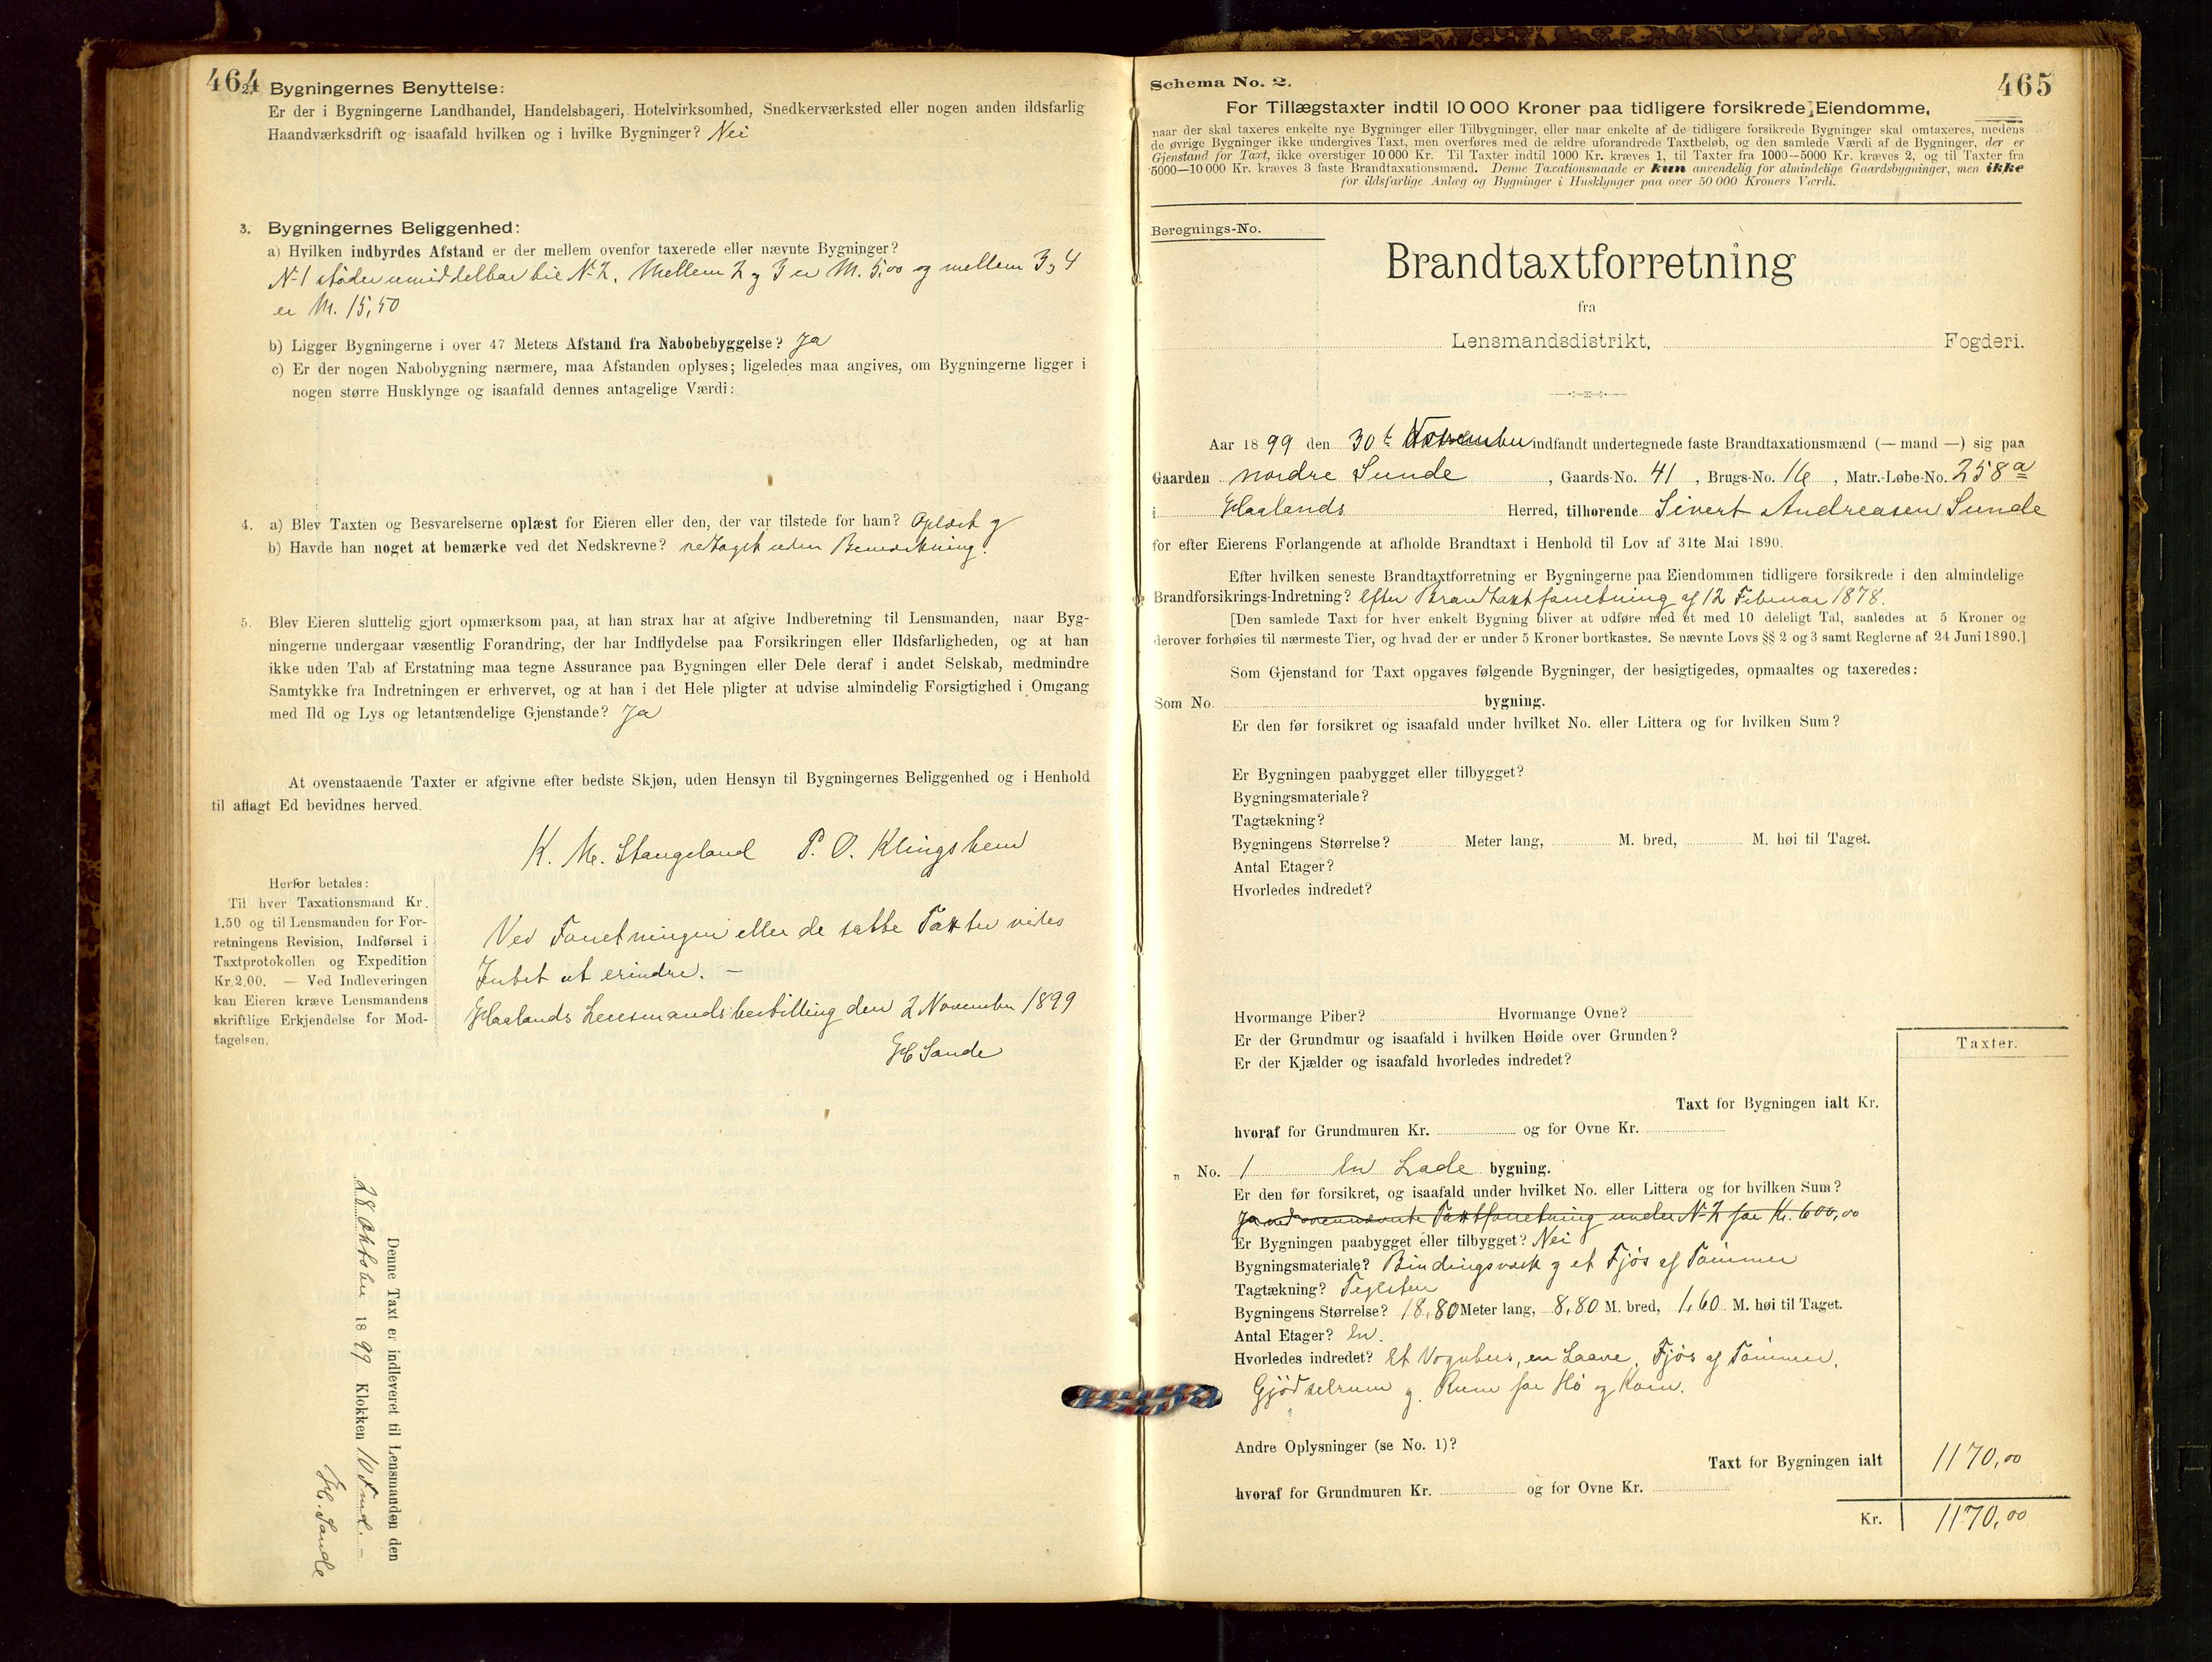 464
2. Bygningernes Benyttelse:
Er der i Bygningerne Landhandel, Handelsbageri, Hotelvirksomhed, Snedkerværksted eller nogen anden ildsfarlig
Haandværksdrift og isaafald hvilken og i hvilke Bygninger? Nei
3. Bygningernes Beliggenhed:
a) Hvilken indbyrdes Afstand er der mellem ovenfor taxerede eller nævnte Bygninger?
N-1 støder umiddelbar til N-2. Mellem 2 og 3 er M. 5,00 og mellem 3 og 4
er M. 15,50
b) Ligger Bygningerne i over 47 Meters Afstand fra Nabobebyggelse? Ja
c) Er der nogen Nabobygning nærmere, maa Afstanden oplyses; ligeledes maa angives, om Bygningerne ligger i
nogen større Husklynge og isaafald dennes antagelige Værdi:
4. a) Blev Taxten og Besvarelserne oplæst for Eieren eller den, der var tilstede for ham? Oplæst og
b) Havde han noget at bemærke ved det Nedskrevne? vedtaget uden Bemærkning.
5. Blev Eieren sluttelig gjort opmærksom paa, at han strax har at afgive Indberetning til Lensmanden, naar Byg-
ningerne undergaar væsentlig Forandring, der har Indflydelse paa Forsikringen eller Ildsfarligheden, og at han
ikke uden Tab af Erstatning maa tegne Assurance paa Bygningen eller Dele deraf i andet Selskab, medmindre
Samtykke fra Indretningen er erhvervet, og at han i det Hele pligter at udvise almindelig Forsigtighed i Omgang
med Ild og Lys og letantændelige Gjenstande? Ja
At ovenstaaende Taxter er afgivne efter bedste Skjøn, uden Hensyn til Bygningernes Beliggenhed og i Henhold
til aflagt Ed bevidnes herved.
K. M. Stangeland P. O. Klingsheim
Herfor betales:
Til hver Taxationsmand Kr.
1.50 og til Lensmanden for For-
retningens Revision, Indførsel i
Taxtprotokollen og Expedition
Kr. 2.00. — Ved Indleveringen
kan Eieren kræve Lensmandens
skriftlige Erkjendelse for Mod-
tagelsen.
Ved Forretningen eller de satte Taxter vides
Intet at erindre. –
Haalands Lensmandsbestilling den 2 November 1899
H Sande
Denne Taxt er indleveret til Lensmanden den
28 Oktober 1899 Klokken 10 Fmd. –
H. Sande
465
Schema No. 2.
For Tillægstaxter indtil 10 000 Kroner paa tidligere forsikrede Eiendomme,
naar der skal taxeres enkelte nye Bygninger eller Tilbygninger, eller naar enkelte af de tidligere forsikrede Bygninger skal omtaxeres, medens
de øvrige Bygninger ikke undergives Taxt, men overføres med de ældre uforandrede Taxtbeløb, og den samlede Værdi af de Bygninger, der er
Gjenstand for Taxt, ikke overstiger 10 000 Kr. Til Taxter indtil 1000 Kr. kræves 1, til Taxter fra 1000—5000 Kr. kræves 2, og til Taxter fra
5000—10 000 Kr. kræves 3 faste Brandtaxationsmænd. Denne Taxationsmaade er kun anvendelig for almindelige Gaardsbygninger, men ikke
for ildsfarlige Anlæg og Bygninger i Husklynger paa over 50 000 Kroners Værdi.
Beregnings-No.
Brandtaxtforretning
fra
Lensmandsdistrikt, Fogderi.
Aar 1899 den 30t indfandt undertegnede faste Brandtaxationsmænd (— mand —) sig paa
Gaarden nordre Sunde, Gaards-No. 41, Brugs-No. 16, Matr.-Løbe-No. 258a
i Haalands Herred, tilhørende Sivert Andreasen Sunde
for efter Eierens Forlangende at afholde Brandtaxt i Henhold til Lov af 31te Mai 1890.
Efter hvilken seneste Brandtaxtforretning er Bygningerne paa Eiendommen tidligere forsikrede i den almindelige
Brandforsikrings-Indretning? Efter Brandtaxtforretning af 12 Februar 1878.
[Den samlede Taxt for hver enkelt Bygning bliver at udføre med et med 10 deleligt Tal, saaledes at 5 Kroner og
derover forhøies til nærmeste Tier, og hvad der er under 5 Kroner bortkastes. Se nævnte Lovs §§ 2 og 3 samt Reglerne af 24 Juni 1890.]
Som Gjenstand for Taxt opgaves følgende Bygninger, der besigtigedes, opmaaltes og taxeredes:
Som No. bygning.
Er den før forsikret og isaafald under hvilket No. eller Littera og for hvilken Sum?
Er Bygningen paabygget eller tilbygget?
Bygningsmateriale?
Tagtækning?
Bygningens Størrelse? Meter lang, M. bred, M. høi til Taget.
Antal Etager?
Hvorledes indredet?
Hvormange Piber? Hvormange Ovne?
Er der Grundmur og isaafald i hvilken Høide over Grunden?
Er der Kjælder og isaafald hvorledes indredet?
Taxter.
Taxt for Bygningen ialt Kr.
hvoraf for Grundmuren Kr. og for Ovne Kr.
„ No. 1 En Lade bygning.
Er den før forsikret, og isaafald under hvilket No. eller Littera og for hvilken Sum?
Ja ved ovennævnte Taxtforretning under N-2 for Kr. 600,00
Er Bygningen paabygget eller tilbygget? Nei
Bygningsmateriale? Bindingsværk og et Fjøs af Tømmer
Tagtækning? Teglsten
Bygningens Størrelse? 18,80 Meter lang, 8,80 M. bred, 1,60 M. høi til Taget.
Antal Etager? En.
Hvorledes indredet? Et Vognhus, en Laave, Fjøs af Tømmer,
Gjødselrum og Rum for Hø og Korn.
Andre Oplysninger (se No. 1)?
Taxt for Bygningen ialt 1170,00
hvoraf for Grundmuren Kr. og for Ovne Kr.
Kr. 1170,00